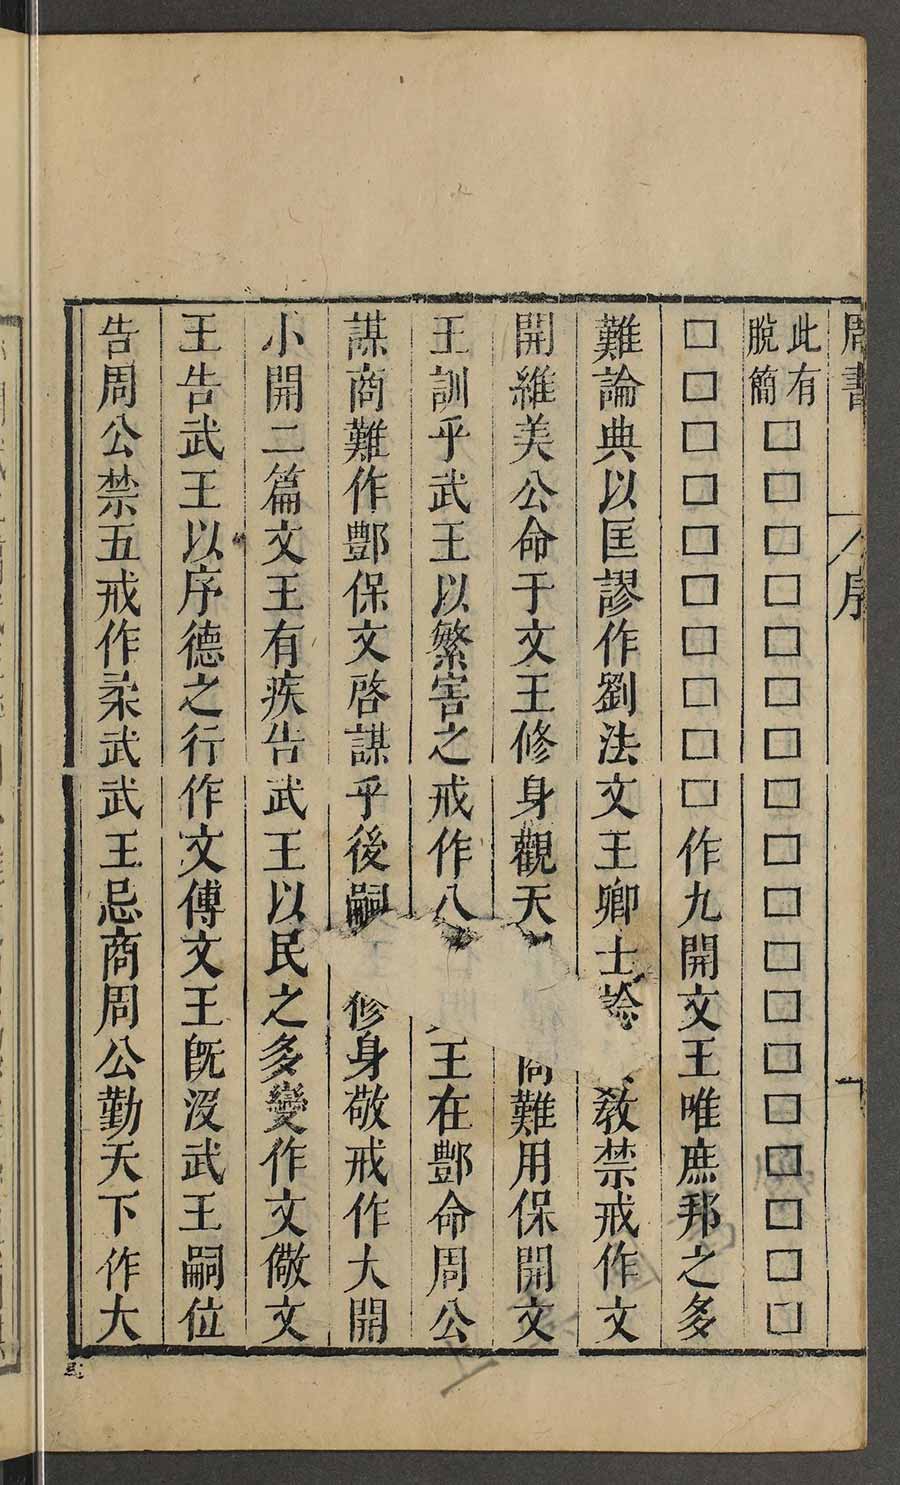 周書 序
此有脫簡□□□□□□□□□□□□□□□□□□
□□□□□□□□□□作九開文王唯庶邦之多
難論典以匡謬作劉法文王卿士教禁戒作文
開維美公命于文王修身觀天難用保開文
王訓乎武王以繁害之戒作八王在酆命周公
謀商難作酆保文啓謀乎後嗣修身敬戒作大開
小開二篇文王有疾告武王以民之多變作文儆文
王告武王以序德之行作文傳文王旣沒武王嗣位
告周公禁五戒作柔武武王忌商周公勤天下作大